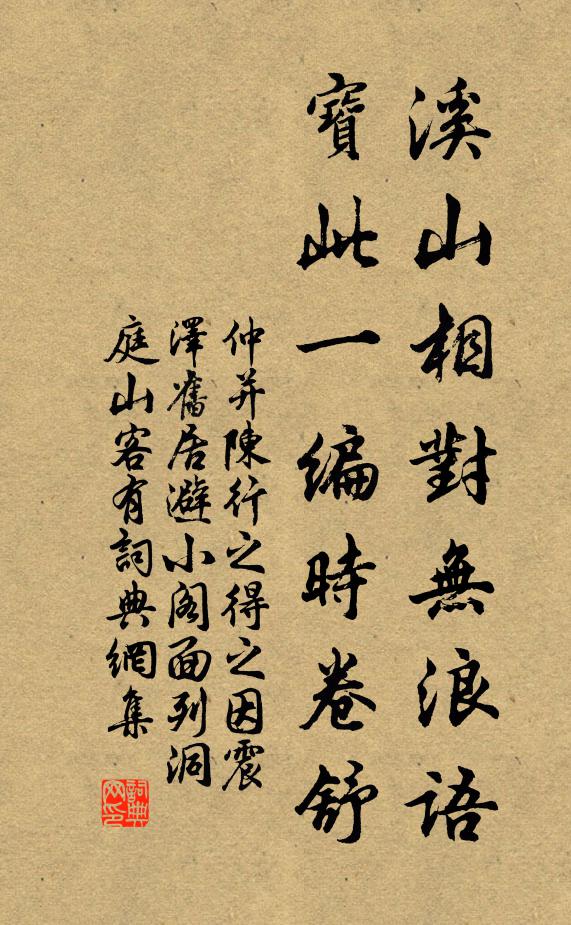 溪山相對無浪語
寶此一編時卷舒
仲并陳行之得之因震
澤舊居避小閣面列洞
庭山客有詞典網集
詞典
网印